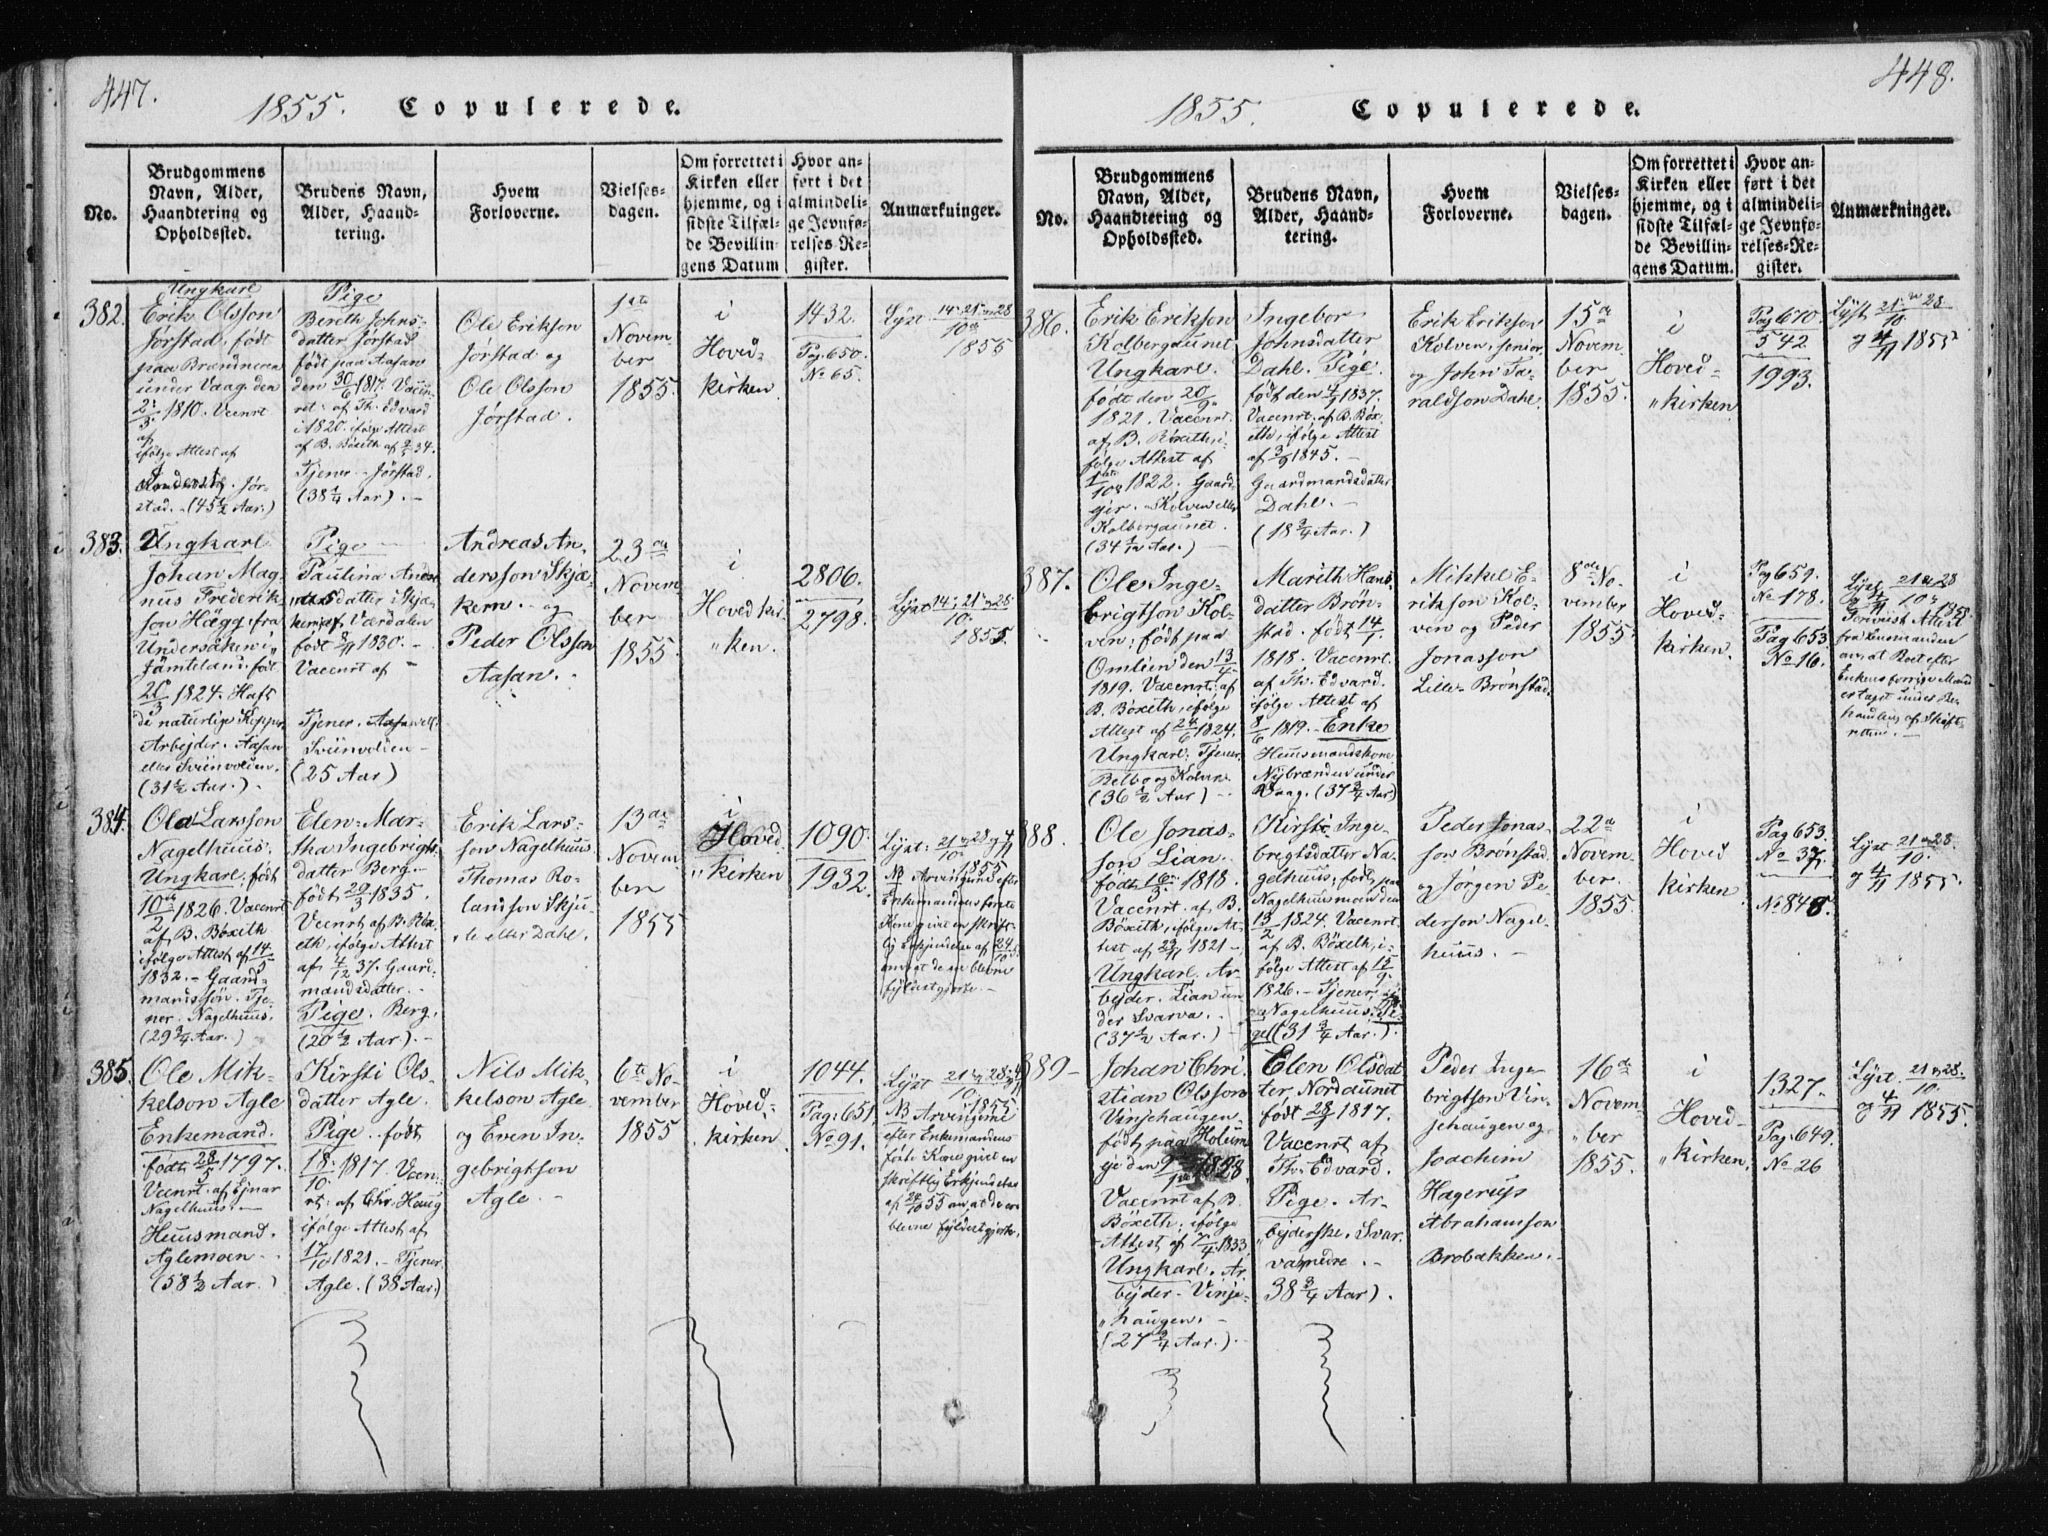 447.
1855. Copulerede.
No.
Brudgommens
Navn, Alder,
Haandtering og
Opholdssted.
Brudens Navn,
Alder, Haand-
tering.
Hvem
Forloverne.
Vielses-
dagen.
Om forrettet i
Kirken eller
hjemme, og i
sidste Tilfæl-
de Bevillin-
gens Datum
Hvor an-
ført i det
almindeli-
ge Jevnfø-
relses-Re-
gister.
Anmærkninger.
382.
Ungkarl
Erik Olsson
Jørstad, født
paa Brændmoen
under Vaag den
2/3 1810. Vacnrt
af
ifølge Attest af
Jør-
stad. - (45 1/2 Aar.)
Pige
Bereth Johns-
datter Jørstad
født paa Aasan
den 30/6 1817. Vacn-
rt: af Th. Edvard
i 1820. ifølge Attest
af B. Böxeth af 34.
Tjener - Jørstad.
(38 1/4 Aar). -
Ole Erikson
Jørstad og
Ole Olsson
Jørstad.
1ste
Novem-
ber
1855.
i
Hoved-
kirken
1432.
Pag. 650.
No 65.
Lyst 14-21-28
10
1855
383.
Ungkarl
Johan Mag-
nus Frederik-
son Hægg fra
Undersåker i
Jämteland, født
/3 1824. Haft
de naturlige Kopper
Arbejder. Aasan
eller Sviinvolden.
(31 1/2 Aar.) -
Pige
Paulina Andre-
asdatter Skjæ-
kern af Værdalen
født 8/11 1830. -
Vacenrt af "
Tjener. Aasan eller
Sviinvolden -
(25 Aar)
Andreas An-
dersson Skjæ-
kern - og
Peder Olsson
Aasan. -
23de
Novem
ber
1855
i
Hoved kir
" ken.
2806.
2798.
Lyst 14, 21 - 28
10.
1855.
384.
Ola Larsson
Nagelhuus.
Ungkarl. født
10de/2 1826. Vacenrt
af B. Böxeth
ifølge Attest af 14/5
1832. - Gaard-
mandssøn. Tje-
ner. Nagelhuus.
(29 3/4 Aar.)
Elen-Mar-
tha Ingebrigts-
datter Berg.
født 29/3 1835.
Vcenrt af B. Böx-
eth, ifølge Attest
af 4/12 37. Gaard-
mandsdatter. -
Pige. Berg.
(20 1/2 Aar). -
Erik Lars-
son Nagelhuus
Thomas Ro-
landson Skju-
" te eller Dahl.
13de
Novem
ber
1855
i
Hoved
" kirken
1090.
1932.
Lyst: 21 - 28 og 4/11
10.
1855
NB Arvingerne efter
Enkemandens første
Kone givet en skrift-
lig Erkjendelse af 24/10
ere blevne
fyldestgjorte. -
385.
Ole Mik-
kelson Agle
Enkemand.
født 28/5 1797.
Vcenrt. af Ejnar
Nagelhuus. -
Huusmand.
Aglemoen -
(58 1/2 Aar.)
Kirsti Ols-
datter Agle.
Pige. født
18/10 1817. Vcen-
rt: af Chr. Haug
ifølge Attest af
17/10 1821. - Tjener
Agle. (38 Aar.)
Nils Mik-
kelson Agle
og Even In-
gebrigtson
Agle. -
6te No-
vember
1855
i
Hoved-
kirken
1044.
Pag: 651.
No 91.
Lyst 21 - 28 - 4/11
10.
1855
NB Arvingerne
efter Enkemandens
første Kone givet en
skriftlig Erkjendelse
af /10 55 om, at de ere
blevne fyldestgjorte.
448.
1855. Copulerede.
No.
Brudgommens
Navn, Alder,
Haandtering og
Opholdssted.
Brudens Navn,
Alder, Haand-
tering.
Hvem
Forloverne.
Vielses-
dagen.
Om forrettet i
Kirken eller
hjemme, og i
sidste Tilfæl-
de Bevillin-
gens Datum.
Hvor an-
ført i det
almindeli-
ge Jevnfø-
relses-Re-
gister.
Anmærkninger.
386.
Erik Erikson
Kolbergaunet
Ungkarl.
født den 20/9
1821. Vacenrt.
af B. Böxeth, i-
følge Attest af
1ste/10 1822. Gaard-
gjer. - Kolven eller
Kolbergaunet.
(34 1/12 Aar.) -
Ingebor
Johnsdatter
Dahl. Pige.
født den 1837.
Vacenrt: af B. Böx-
eth, ifølge Attest
af 1845. -
Gaardmandsdatter
Dahl. -
(18 3/4 Aar.)
Erik Erikson
Kolven, senior,
og John Ta-
raldson Dahl.
15de
Novem-
ber
1855.
i
Hoved-
" kirken
Pag 670.
542
1993.
Lyst 21 - 28
10.
og 4/11 1855
387.
Ole Inge-
brigtson Kol-
ven; født paa
Omlien den 13/4
1819. Vacenrt: af
B. Böxeth, ifølge
Attest af 24/6 1824.
Ungkarl. Tjener
Belbo og Kolven
(36 1/2 Aar) -
Marith Hans-
datter Brøn-
stad. født 14/
1818. Vacenrt.
af Th. Edvard.
ifølge Attest af
8/6 1819. - Enke
Huusmandskone
Nybrænden under
Vaag. (37 3/4 Aar)
Mikkel E-
rikson Kol-
ven og Peder
Jonasson
Lille-Brønstad.
8de No-
vember
1855.
i
Hoved-
kirken.
Pag 659.
No 178.
Pag 653
No 16.
Lyst 21 - 28
og 4/11 10. 1855
Attest
fra Lensmanden
om, at Boet efter
Enkens forrige Mand
er taget under Be-
handling af Skifte-
retten. -
388
Ole Jonas-
son Lian.
født 16/3 1818.
Vacenrt. af B.
Böxeth, ifølge At-
test af 23/11 1821 -
Ungkarl. Ar-
bejder. Lian un-
der Svarva. -
(37 1/2 Aar.)
Kirsti Inge-
brigtsdatter Na-
gelhuus, født paa
Nagelhuusmoen den
13/2 1824. Vacenrt.
af B. Böxeth, i-
følge Attest af 15/9
1826. - Tjener,
Nagelhuus. Pi-
ge (31 3/4 Aar.)
Peder Jonas-
son Brønstad
og Jørgen Pe-
derson Nagel-
huus. -
22de
Novem-
ber.
1855.
i
Hoved
kirken
Pag 653.
No 37.
No 848.
Lyst 21 - 28.
10.
og 4/11 1855.
389 -
Johan Chri-
stian Olsson
Vinjehaugen
født paa Holum
je den 9 1828
Vacenrt af B.
Böxeth; ifølge
Attest af /4 1833.
Ungkarl. Ar.
bejder - Vinje-
" haugen. -
(27 3/4 Aar.) -
Elen Olsdat-
ter, Nordaunet
født 28/ 1817.
Vacenrt af
Th. Edvard.
Pige. Ar-
bejderske, Svar-
vanedre. -
38 3/4 Aar).
Peder Inge-
brigtson Vin-
jehaugen og
Joachim
Hagerup
Abrahamson
Brobakken. -
16de
Novem-
" ber
1855.
i
Hoved-
" kirken.
1327.
Pag: 649.
No 26
Lyst. 21 - 28.
10.
og 4/11 1855.